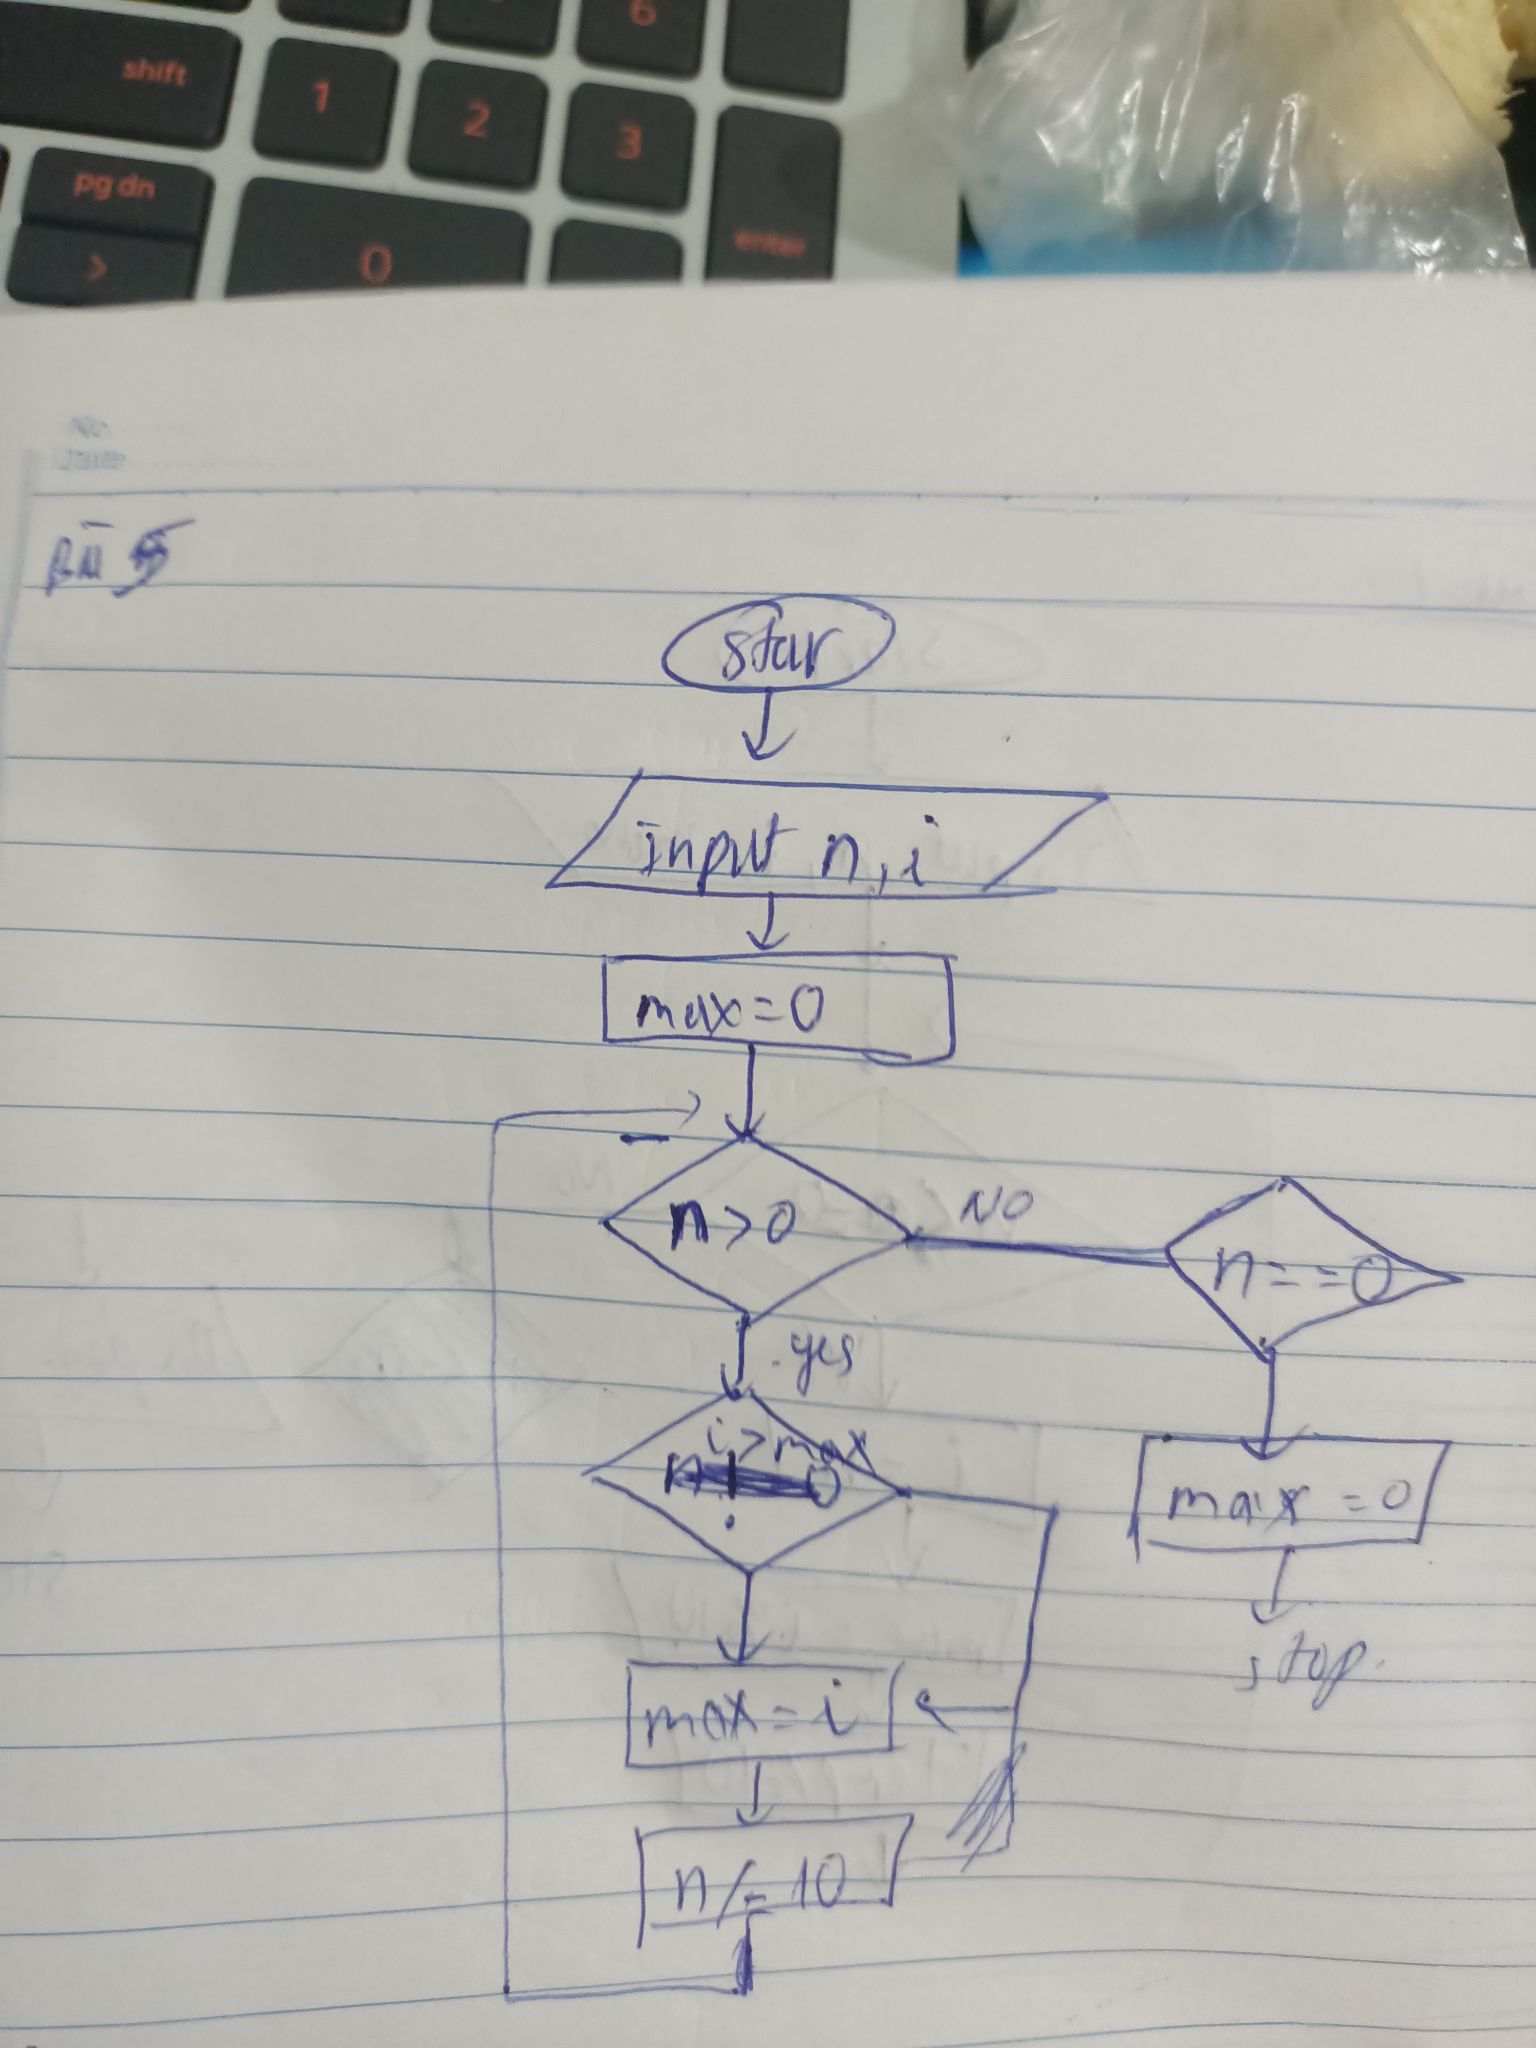 6
shift
1
2
3
pg dn
>
0
enter
No
Date
BÀI 5
star
input n, i
max=0
n>0
NO
n==0
yes
i>max
max=0
stop.
max=i
n/=10